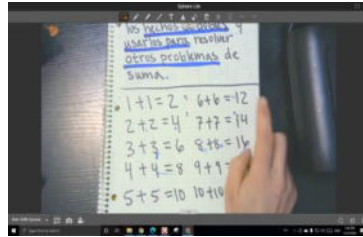 los hechos dobles y
usarlos para resolver
otros problemas de
suma.
1+1=2 6+6=12
2+2=4 7+7=14
3+3=6 8+8=16
4+4=8 9+9=
5+5=10 10+10